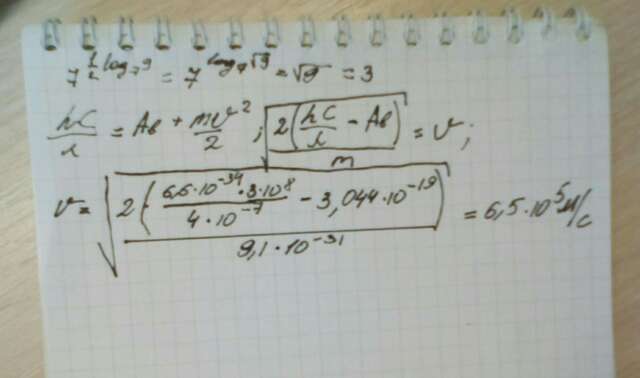 7^{\frac{1}{2}log_7 9} = 7^{log_7 √9} = √9 = 3
\frac{hC}{λ} = Aв + \frac{mv^2}{2}; \sqrt{\frac{2(\frac{hC}{λ} - Aв)}{m}} = v;
v = \sqrt{\frac{2(\frac{6,6·10^{-34}·3·10^8}{4·10^{-7}} - 3,044·10^{-19})}{9,1·10^{-31}}} = 6,5·10^5 м/с